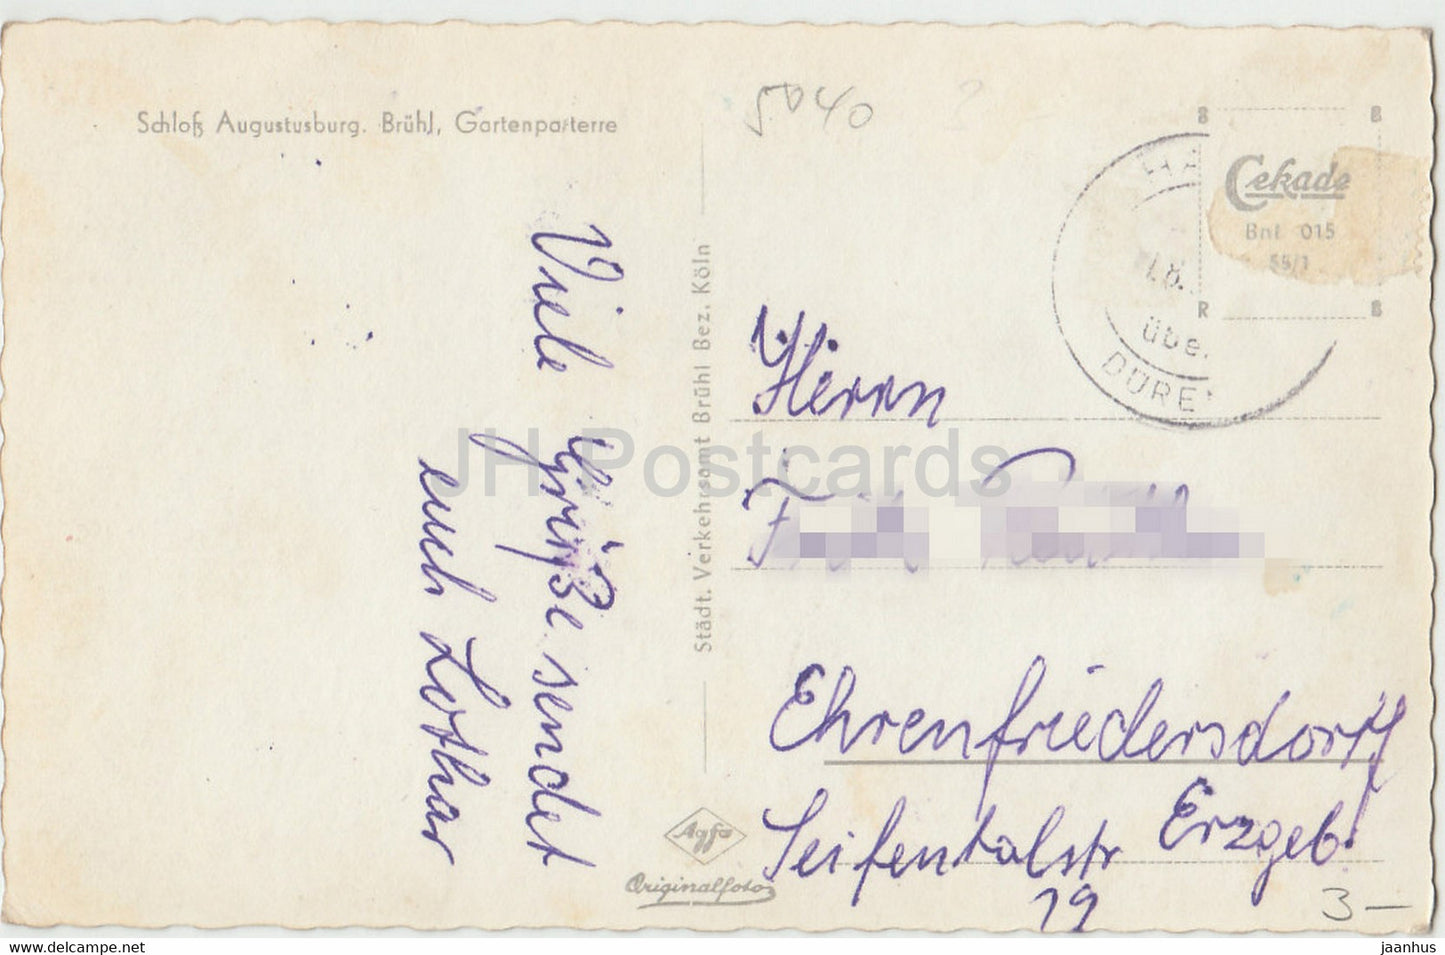 Schloß Augustusburg. Brühl, Gartenparterre
5040
Cekade
Bnt 015
55/1
B B
R B
1.8.
übe.
DÜRE
Viele Grüße sendet
euch Lothar
Städt. Verkehrsamt Brühl Bez. Köln
Herrn
Ehrenfriedersdorf
Erzgeb.
Seifentalstr
19
Agfa
Originalfoto
3 –
JH Postcards
www.delcampe.net
jaanhus